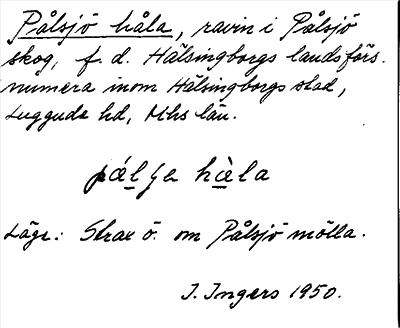 Pålsjö håla, ravin i Pålsjö
skog, f. d. Hälsingborgs landsförs.
numera inom Hälsingborgs stad,
Luggude hd, Mhs län.
hàla
Läge: Strax ö. om Pålsjö mölla.
I. Ingers 1950.